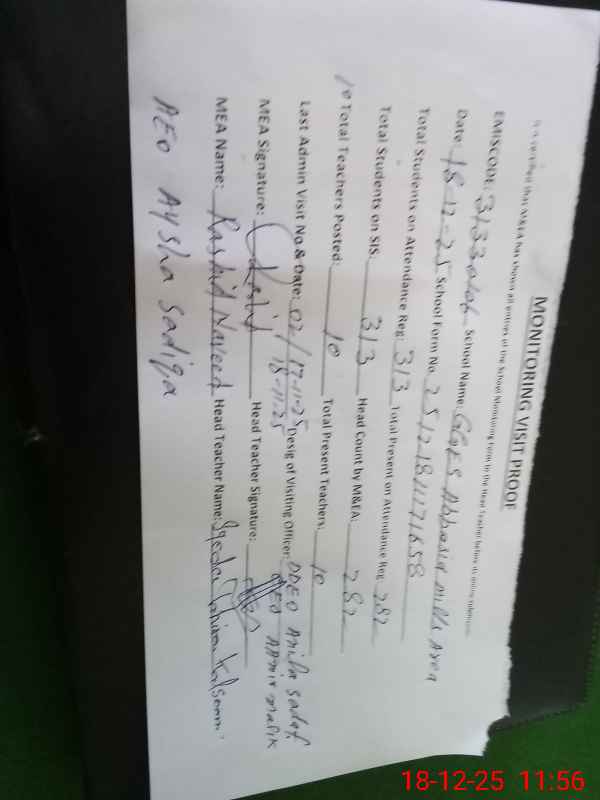 MONITORING VISIT PROOF
It is certified that M&EA has shown all entries of the School Monitoring Form to the Head Teacher before its online submission.
EMISCODE: 31330106 School Name: GGES Abbasia mills Area
Date: 18-12-25 School Form No. 25121811171658
Total Students on Attendance Reg: 313 Total Present on Attendance Reg: 282
Total Students on SIS: 313 Head Count by M&EA: 282
10 Total Teachers Posted: 10 Total Present Teachers: 10
Last Admin Visit No & Date: 02/ 17-11-25 Desig of Visiting Officer: DDEO Anila Sadaf
18-11-25 AEO AAmir malik
MEA Signature: Head Teacher Signature:
MEA Name: Rashid Naveed Head Teacher Name: Kalsoom
AEO Aysha Sadiqa
18-12-25 11:56